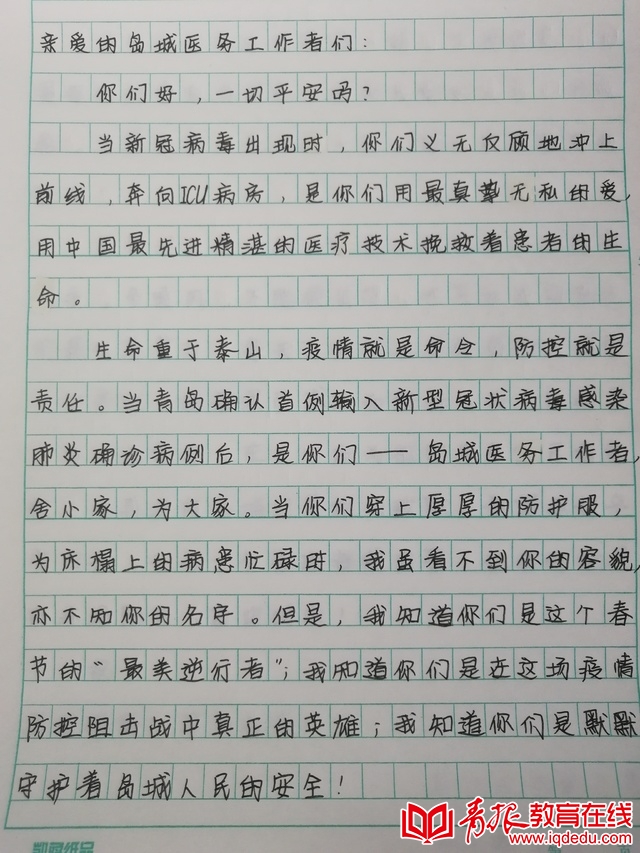 亲爱的岛城医务工作者们：
你们好，一切平安吗？
当新冠病毒出现时，你们义无反顾地冲上
前线，奔向ICU病房，是你们用最真挚无私的爱，
用中国最先进精湛的医疗技术挽救着患者的生
命。
生命重于泰山，疫情就是命令，防控就是
责任。当青岛确认首例输入新型冠状病毒感染
肺炎确诊病例后，是你们——岛城医务工作者，
舍小家，为大家。当你们穿上厚厚的防护服，
为床榻上的病患忙碌时，我虽看不到你的容貌，
亦不知你的名字。但是，我知道你们是这个春
节的“最美逆行者”；我知道你们是在这场疫情
防控阻击战中真正的英雄；我知道你们是默默
守护着岛城人民的安全！
青报教育在线
www.iqdedu.com